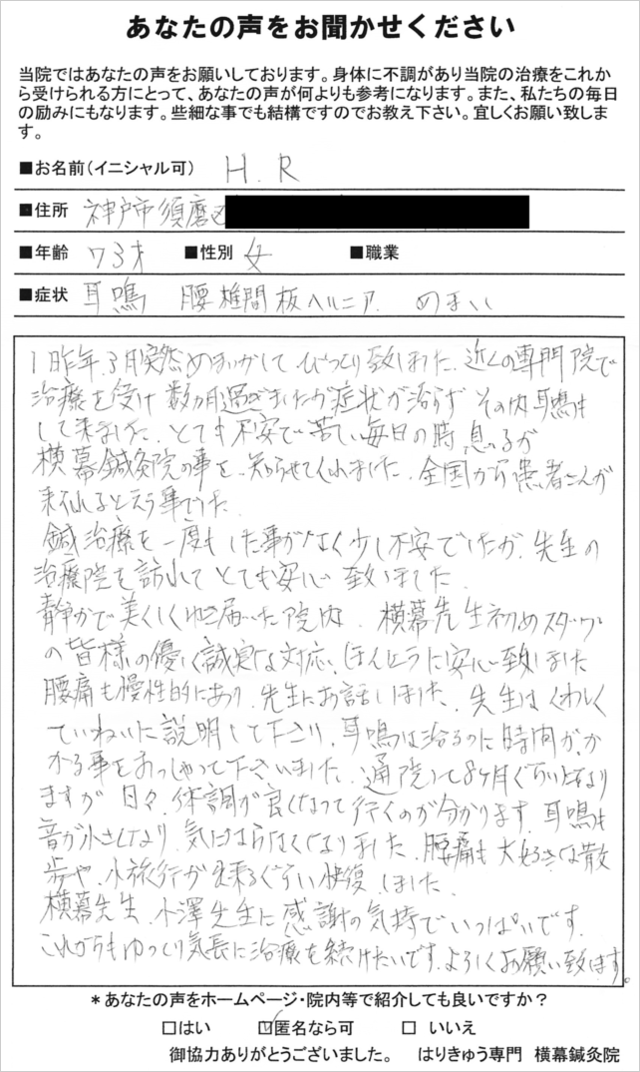 あなたの声をお聞かせください
当院ではあなたの声をお願いしております。身体に不調があり当院の治療をこれか
ら受けられる方にとって、あなたの声が何よりも参考になります。また、私たちの毎日
の励みにもなります。些細な事でも結構ですのでお教え下さい。宜しくお願い致しま
す。
■お名前(イニシャル可) H.R
■住所 神戸市須磨区
■年齢 73才 ■性別 女 ■職業
■症状 耳鳴 腰椎間板ヘルニア めまい
1昨年、3月突然めまいがして びっくり致しました。近くの専門院で
治療を受け 数ヶ月過ぎましたが症状が治らず その内耳鳴も
して来ました。とても不安で苦しい毎日の時 息子が
横幕鍼灸院の事を、知らせてくれました。全国から患者さんが
来られると云う事でした。
鍼治療を一度もした事がなく少し不安でしたが、先生の
治療院を訪れて とても安心 致しました。
静かで美くしく行き届いた院内、横幕先生初めスタッフ
の皆様の優しく誠実な対応、ほんとうに安心致しました
腰痛も慢性的にあり、先生にお話しました。先生はくわしく
ていねいに説明して下さり、耳鳴は治るのに時間が、か
かる事をおっしゃって下さいました。通院して8ヶ月ぐらいになり
ますが 日々、体調が良くなって行くのが分かります。耳鳴も
音が小さくなり、気にならなくなりました。腰痛も大好きな散
歩や、小旅行が出来るぐらい快復しました。
横幕先生、小澤先生に感謝の気持でいっぱいです。
これからもゆっくり気長に治療を続けたいです。よろしくお願い致します。
*あなたの声をホームページ・院内等で紹介しても良いですか?
□はい ☑匿名なら可 □ いいえ
御協力ありがとうございました。 はりきゅう専門 横幕鍼灸院